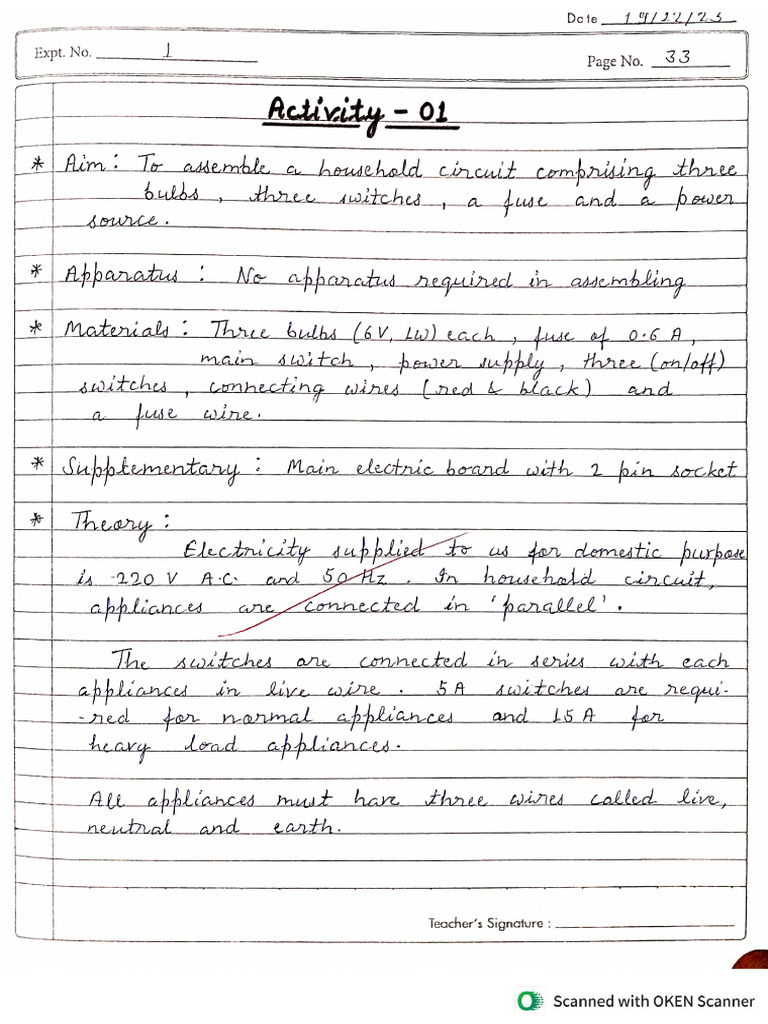 Date 19/12/23
Expt. No. 1
Page No. 33
Activity - 01
* Aim : To assemble a household circuit comprising three
bulbs , three switches , a fuse and a power
source .
* Apparatus : No apparatus required in assembling
* Materials : Three bulbs (6V, 1W) each , fuse of 0.6 A ,
main switch , power supply , three (on/off)
switches , connecting wires (red & black) and
a fuse wire .
* Supplementary : Main electric board with 2 pin socket
* Theory :
Electricity supplied to us for domestic purpose
is 220 V A.C. and 50 Hz . In household circuit,
appliances are connected in 'parallel' .
The switches are connected in series with each
appliances in live wire . 5A switches are requi-
-red for normal appliances and 15A for
heavy load appliances .
All appliances must have three wires called live,
neutral and earth .
Teacher's Signature :
Scanned with OKEN Scanner